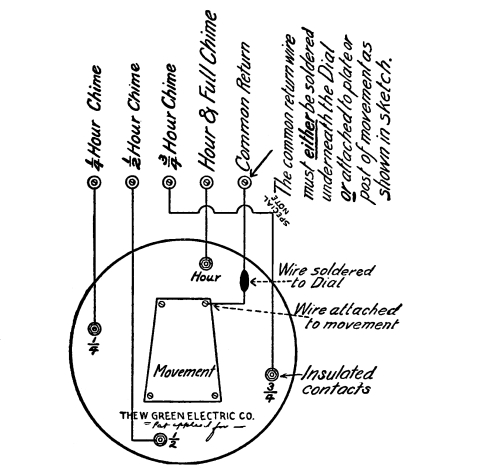 ¼ Hour Chime
½ Hour Chime
¾ Hour Chime
Hour & Full Chime
Common Return
The common return wire
must either be soldered
underneath the Dial
or attached to plate or
post of movement as
shown in sketch.
SPECIAL
NOTE
Hour
Wire soldered
to Dial
Wire attached
to movement
¼
Movement
Insulated
contacts
¾
THE W GREEN ELECTRIC CO.
Pat applied for
½